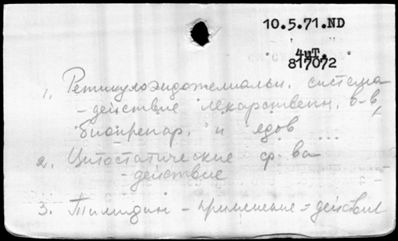 10.5.71.ND
4цТ.
817072
1. Ретикулоэндотелиальн. система
- действие лекарственн. в-в,
биопрепар. и ядов
2. Цитостатические ср-ва
- действие
3. Тилидин - применение = действие